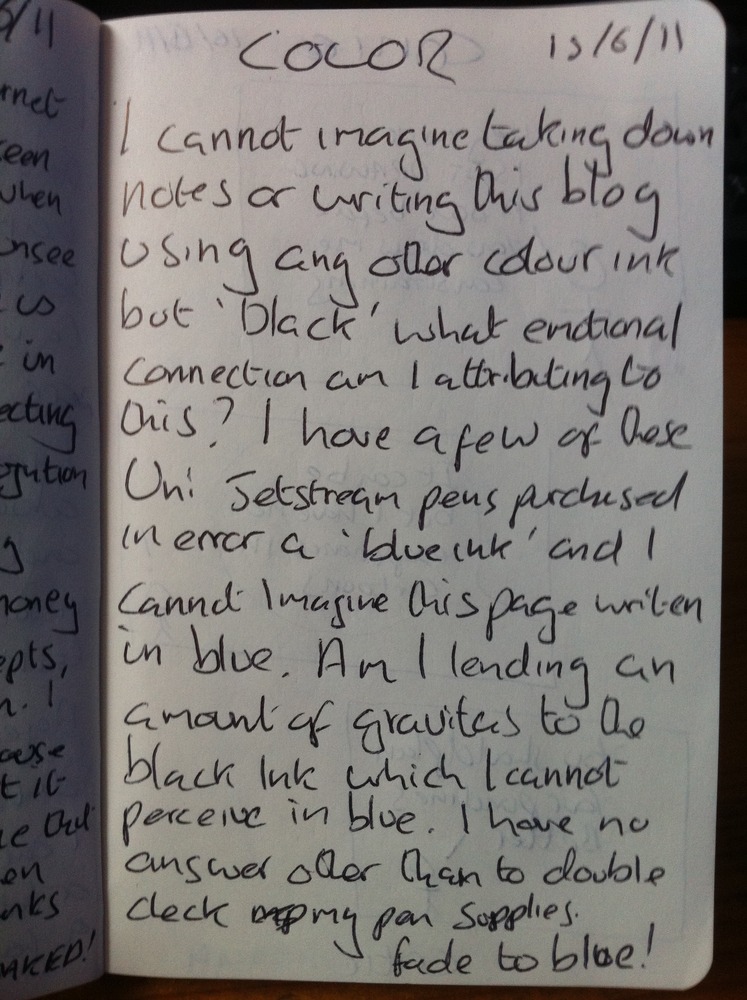 COLOR 13/6/11
I cannot imagine taking down
notes or writing this blog
using any other colour ink
but 'black' what emotional
connection am I attributing to
this? I have a few of these
Uni Jetstream pens purchased
in error a 'blue ink' and I
cannot imagine this page written
in blue. Am I lending an
amount of gravitas to the
black ink which I cannot
perceive in blue. I have no
answer other than to double
check my pen supplies.
fade to blue!
/11
rnet
een
when
nsee
us
in
ecting
g
money
epts,
n. I
ause
t it
en
nks
AKED!